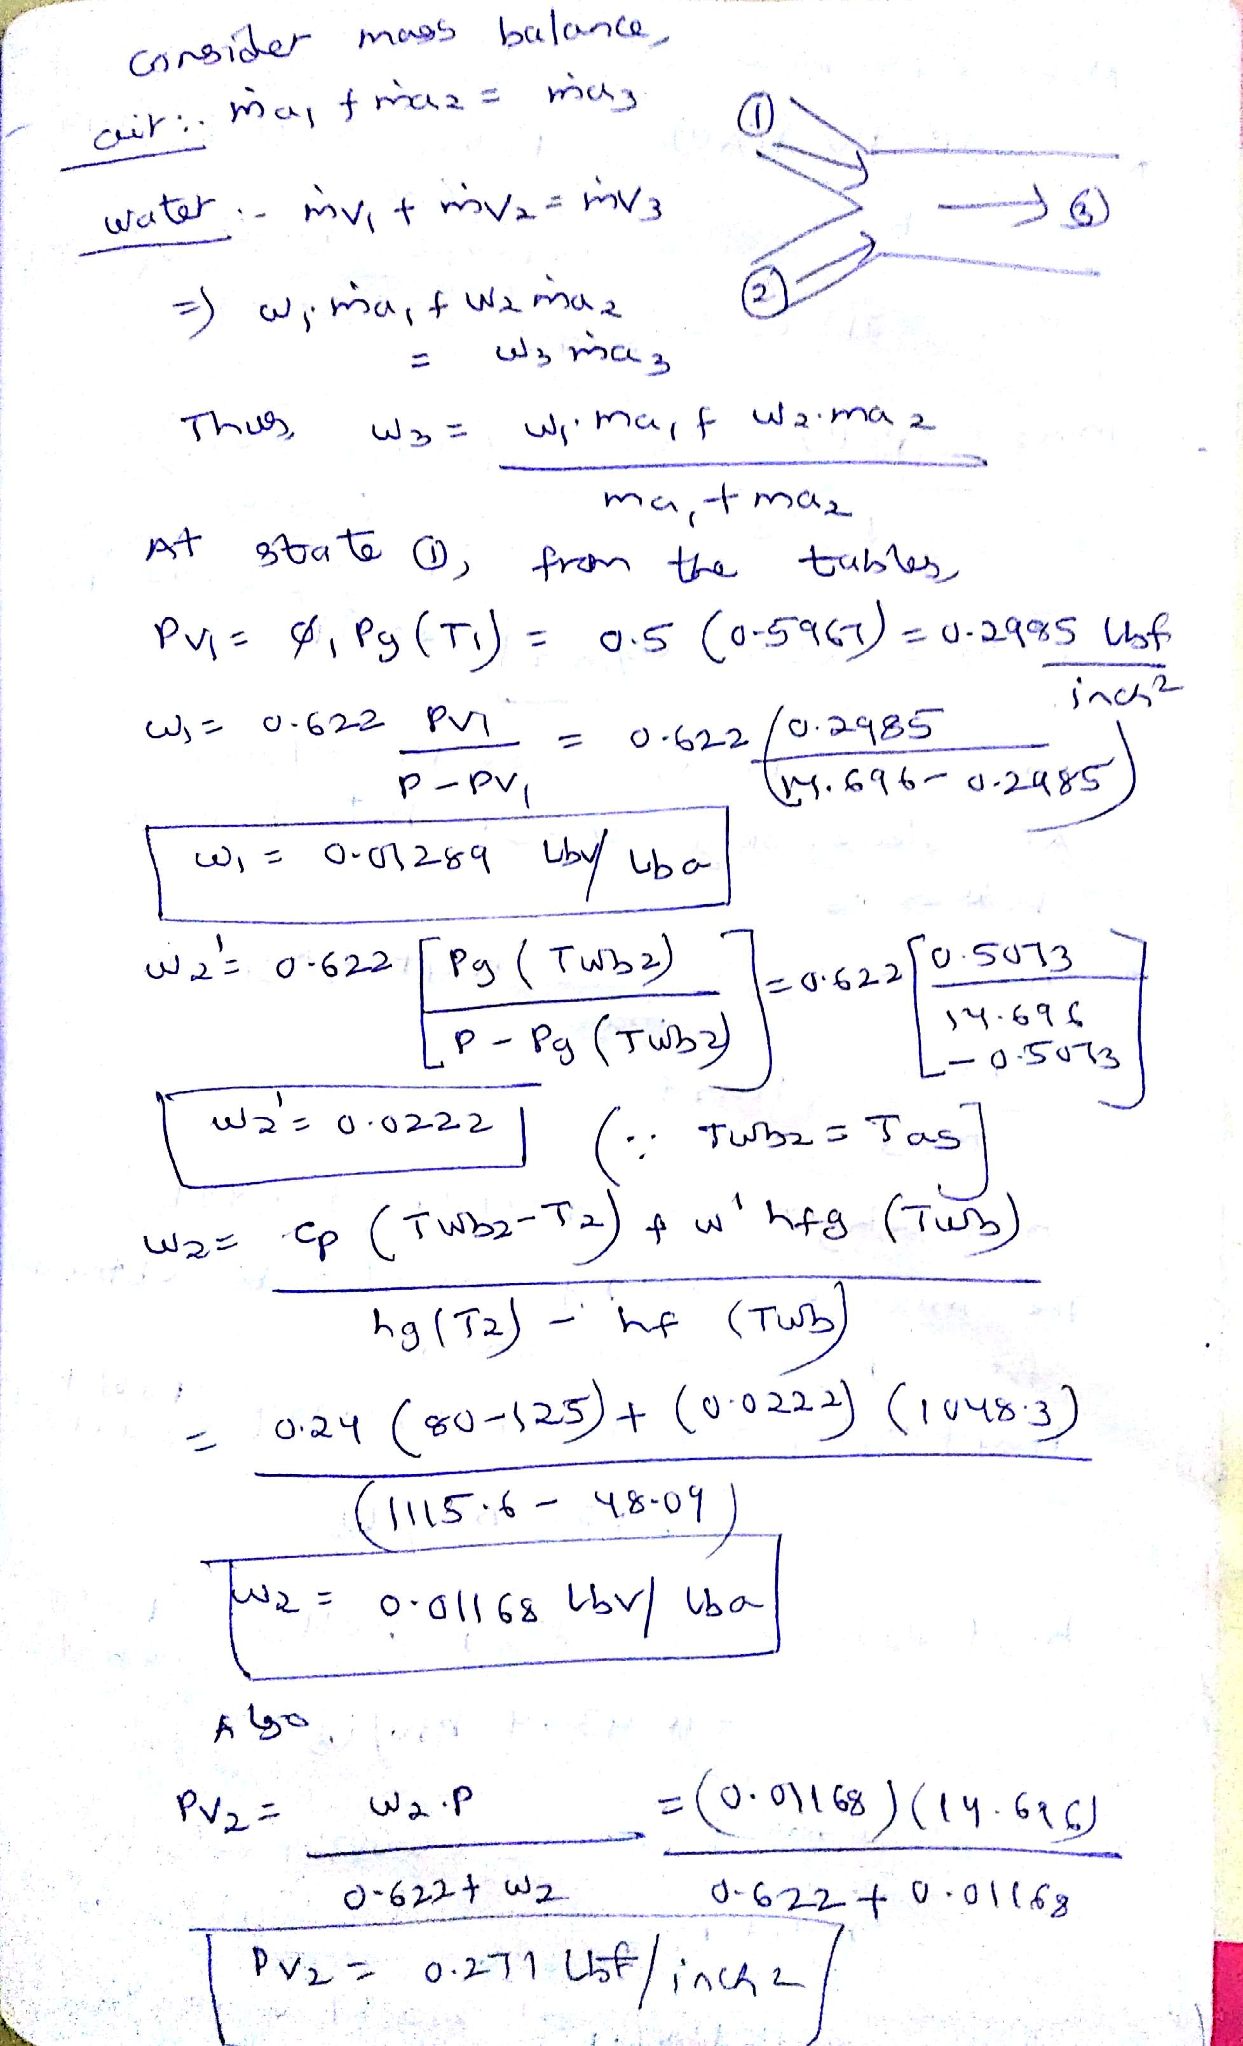 consider mass balance,
air :- ṁa₁ + ṁa₂ = ṁa₃
① 
water :- ṁv₁ + ṁv₂ = ṁv₃
③
⇒ ω₁.ṁa₁ + ω₂ ṁa₂
②
= ω₃ ṁa₃
Thus, ω₃ = ω₁.ma₁ + ω₂.ma₂
ma₁ + ma₂
At state ①, from the tables,
Pv₁ = ϕ₁ Pg (T₁) = 0.5 (0.5967) = 0.2985 lbf
inch²
ω₁ = 0.622 Pv1 = 0.622 (0.2985
P - Pv₁ 14.696 - 0.2985)
ω₁ = 0.01289 lbv/lba
ω₂' = 0.622 [Pg (Twb2) ] = 0.622 [0.5073
P - Pg (Twb2) 14.696
- 0.5073]
ω₂' = 0.0222 (∵ Twb2 = Tas]
ω₂ = Cp (Twb2 - T₂) + ω' hfg (Twb)
hg (T₂) - hf (Twb)
= 0.24 (80-125) + (0.0222) (1048.3)
(1115.6 - 48.09)
ω₂ = 0.01168 lbv/lba
Also
Pv₂ = ω₂.P = (0.01168) (14.696)
0.622 + ω₂ 0.622 + 0.01168
Pv₂ = 0.271 lbf/inch2